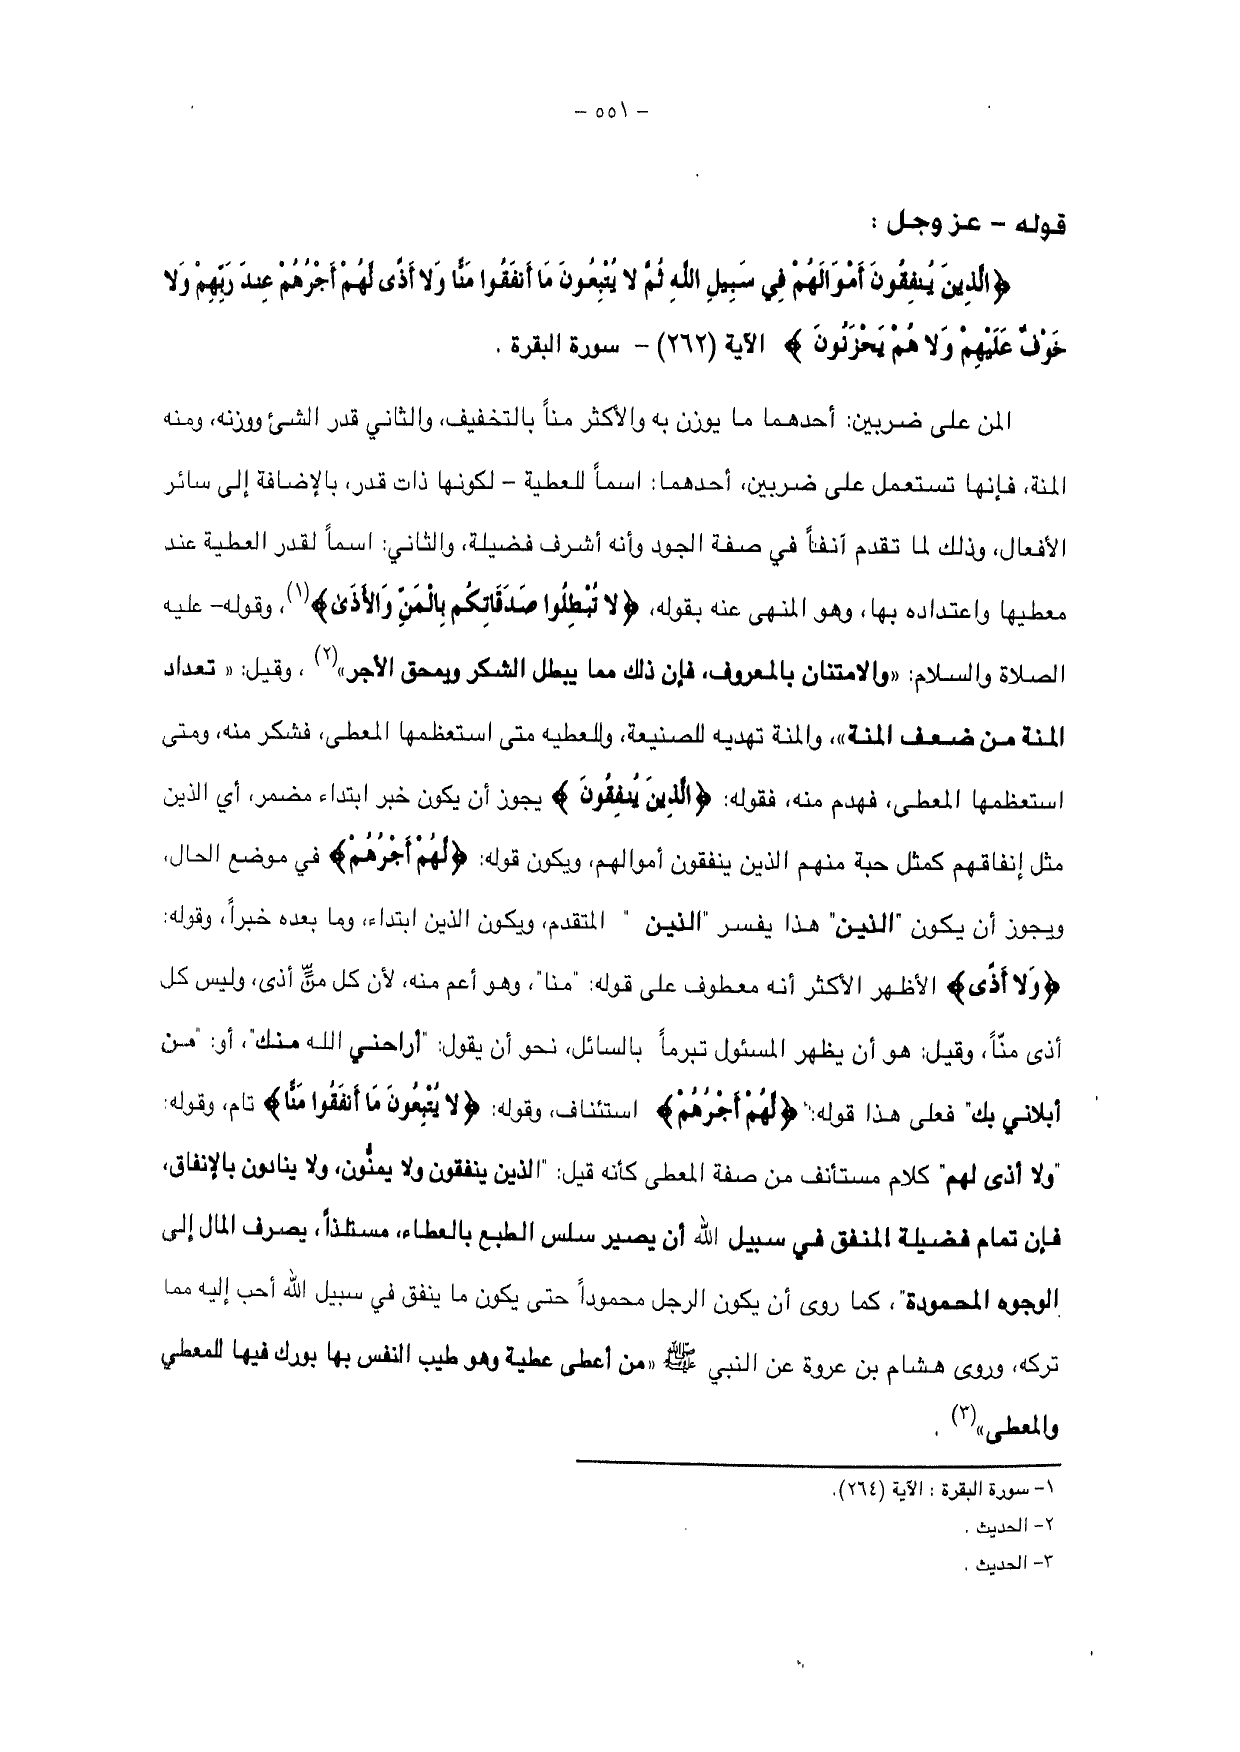 – ٥٥١ –
قوله – عز وجل :
﴿الَّذِينَ يُنفِقُونَ أَمْوَالَهُمْ فِي سَبِيلِ اللَّهِ ثُمَّ لا يُتْبِعُونَ مَا أَنفَقُوا مَنًّا وَلا أَذًى لَهُمْ أَجْرُهُمْ عِندَ رَبِّهِمْ وَلا
خَوْفٌ عَلَيْهِمْ وَلا هُمْ يَحْزَنُونَ ﴾ الآية (٢٦٢) – سورة البقرة .
المن على ضربين: أحدهما ما يوزن به والأكثر مناً بالتخفيف، والثاني قدر الشئ ووزنه، ومنه
المنة، فإنها تستعمل على ضربين، أحدهما: اسماً للعطية – لكونها ذات قدر، بالإضافة إلى سائر
الأفعال، وذلك لما تقدم آنفاً في صفة الجود وأنه أشرف فضيلة، والثاني: اسماً لقدر العطية عند
معطيها واعتداده بها، وهو المنهى عنه بقوله، ﴿لا تُبْطِلُوا صَدَقَاتِكُم بِالْمَنِّ وَالأَذَىٰ﴾(١)، وقوله– عليه
الصلاة والسلام: «والامتنان بالمعروف، فإن ذلك مما يبطل الشكر ويمحق الأجر»(٢) ، وقيل: « تعداد
المنة من ضعف المنة»، والمنة تهديه للصنيعة، وللعطيه متى استعظمها المعطى، فشكر منه، ومتى
استعظمها المعطى، فهدم منه، فقوله: ﴿الَّذِينَ يُنفِقُونَ ﴾ يجوز أن يكون خبر ابتداء مضمر، أي الذين
مثل إنفاقهم كمثل حبة منهم الذين ينفقون أموالهم، ويكون قوله: ﴿لَهُمْ أَجْرُهُمْ﴾ في موضع الحال،
ويجوز أن يكون "الذين" هذا يفسر "الذين " المتقدم، ويكون الذين ابتداء، وما بعده خبراً، وقوله:
﴿وَلا أَذًى﴾ الأظهر الأكثر أنه معطوف على قوله: "منا"، وهو أعم منه، لأن كل منٍّ أذى، وليس كل
أذى منّاً، وقيل: هو أن يظهر المسئول تبرماً بالسائل، نحو أن يقول: "أراحني الله منك"، أو: "من
أبلاني بك" فعلى هذا قوله: ﴿لَهُمْ أَجْرُهُمْ﴾ استئناف، وقوله: ﴿لا يُتْبِعُونَ مَا أَنفَقُوا مَنًّا﴾ تام، وقوله:
"ولا أذى لهم" كلام مستأنف من صفة المعطى كأنه قيل: "الذين ينفقون ولا يمنُّون، ولا ينادون بالإنفاق،
فإن تمام فضيلة المنفق في سبيل الله أن يصير سلس الطبع بالعطاء، مستلذاً، بصرف المال إلى
الوجوه المحمودة"، كما روى أن يكون الرجل محموداً حتى يكون ما ينفق في سبيل الله أحب إليه مما
تركه، وروى هشام بن عروة عن النبي ﷺ «من أعطى عطية وهو طيب النفس بها بورك فيها للمعطي
والمعطى»(٣) .
١– سورة البقرة : الآية (٢٦٤).
٢– الحديث .
٣– الحديث .